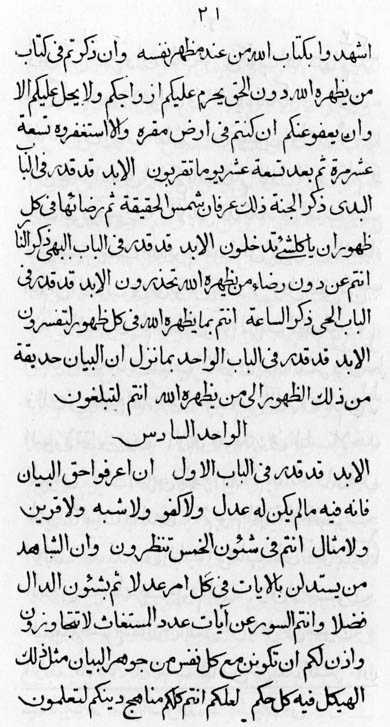 ٢١
اشهدوا بكتاب الله من عند مظهر نفسه وان ذكرتم فى كتاب
من يظهره الله دون الحق يحرم عليكم ازواجكم ولا يحل عليكم الا
وان يعفو عنكم ان كنتم فى ارض مقره والا استغفروه تسعة
عشر مرة ثم بعد تسعة عشر يوما تقربون الابد قد قدر فى الباب
البدى ذكر الجنة ذلك عرفان شمس الحقيقة ثم رضائها فى كل
ظهور ان يا كلشئ تدخلون الابد قد قدر فى الباب البهى ذكر النا
انتم عن دون رضاء من يظهره الله تحذرون الابد قد قدر فى
الباب الحى ذكر الساعة انتم بما يظهره الله فى كل ظهور لتفسرون
الابد قد قدر فى الباب الواحد بما نزل ان البيان حديقة
من ذلك الظهور الى من يظهره الله انتم لتبلغون
الواحد السادس
الابد قد قدر فى الباب الاول ان اعرفوا حق البيان
فانه فيه ما لم يكن له عدل ولا كفو ولا شبه ولا قرين
ولا مثال انتم فى شئون الخمس تنظرون وان الشاهد
من يستدلن بالايات فى كل امر عدلا ثم بشئون الدال
فضلا وانتم السور عن آيات عدد المستغاث لا تجاوزون
واذن لكم ان تكونن مع كل نفس من جوهر البيان مثل ذلك
الهيكل فيه كل حكم لعلكم انتم كلكم مناهج دينكم لتعلمون